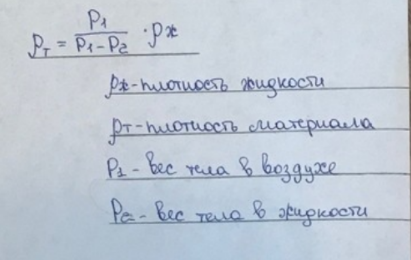 ρт = P1 / P1-P2 · ρж
ρж-плотность жидкости
ρт-плотность материала
P1 - вес тела в воздухе
P2 - вес тела в жидкости